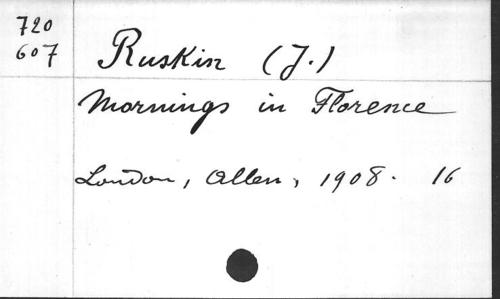 720
607
Ruskin (J.)
Mornings in Florence
London, Allen, 1908. 16